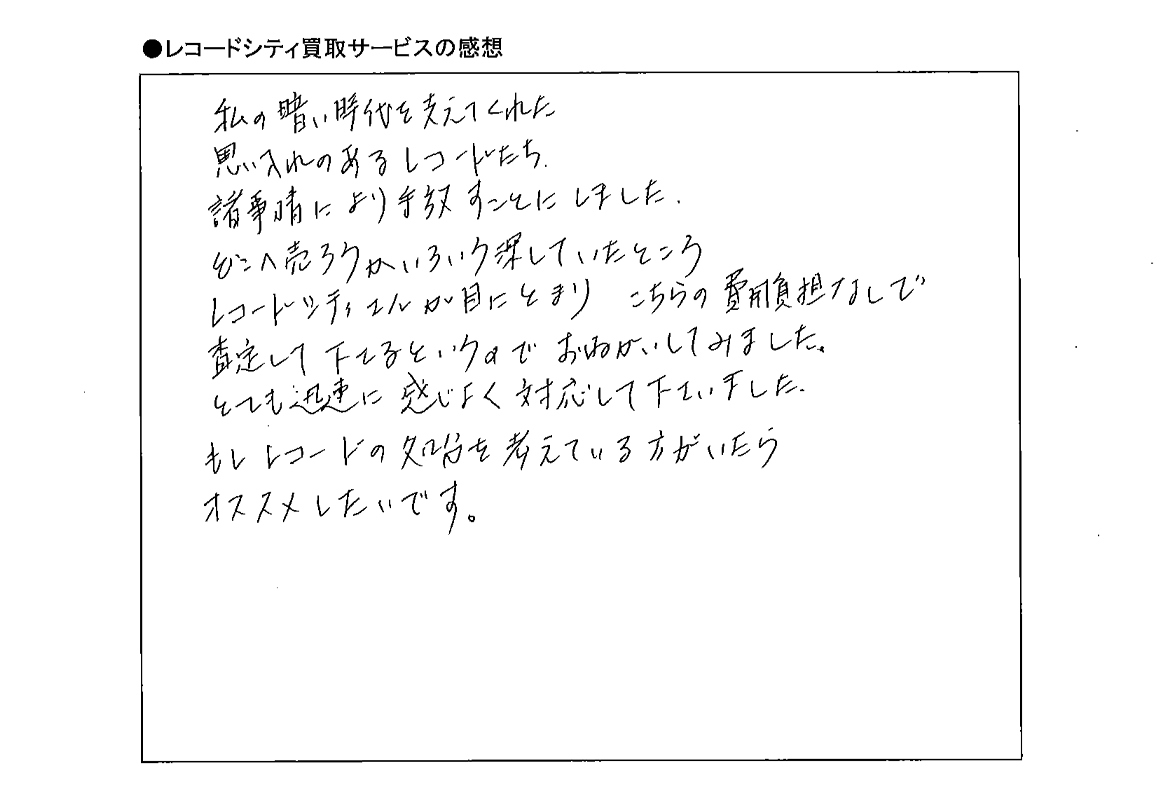 ●レコードシティ買取サービスの感想
私の暗い時代を支えてくれた
思い入れのあるレコードたち.
諸事情により手放すことにしました.
どこへ売ろうかいろいろ探していたところ
レコードシティさんが目にとまり こちらの費用負担なしで
査定して下さるというので おねがいしてみました。
とても迅速に感じよく対応して下さいました.
もしレコードの処分を考えている方がいたら
オススメしたいです。